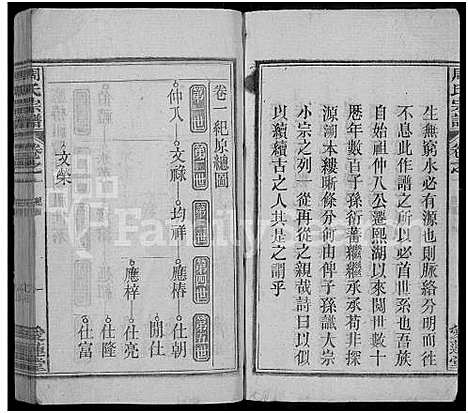 周氏宗譜
卷之
生無窮水必有源也則脈絡分明
此作譜之所以必首世系也吾族
自始祖仲八公遷熙湖以來閱世
歷年數百子孫衍蕃繼繼承承苟非探
源溯本縷晰條分何由俾子孫識大宗
小宗之列一從再從之親哉詩曰以似
以續續古之人其是之謂乎
愛蓮堂
卷一紀原總圖
第一世
第二世
第三世
第四世
第五世
仲八
文祿
均祥
應椿
仕朝
閒仕
應梓
仕亮
仕隆
仕富
文榮
周氏宗譜
卷之一
愛蓮堂